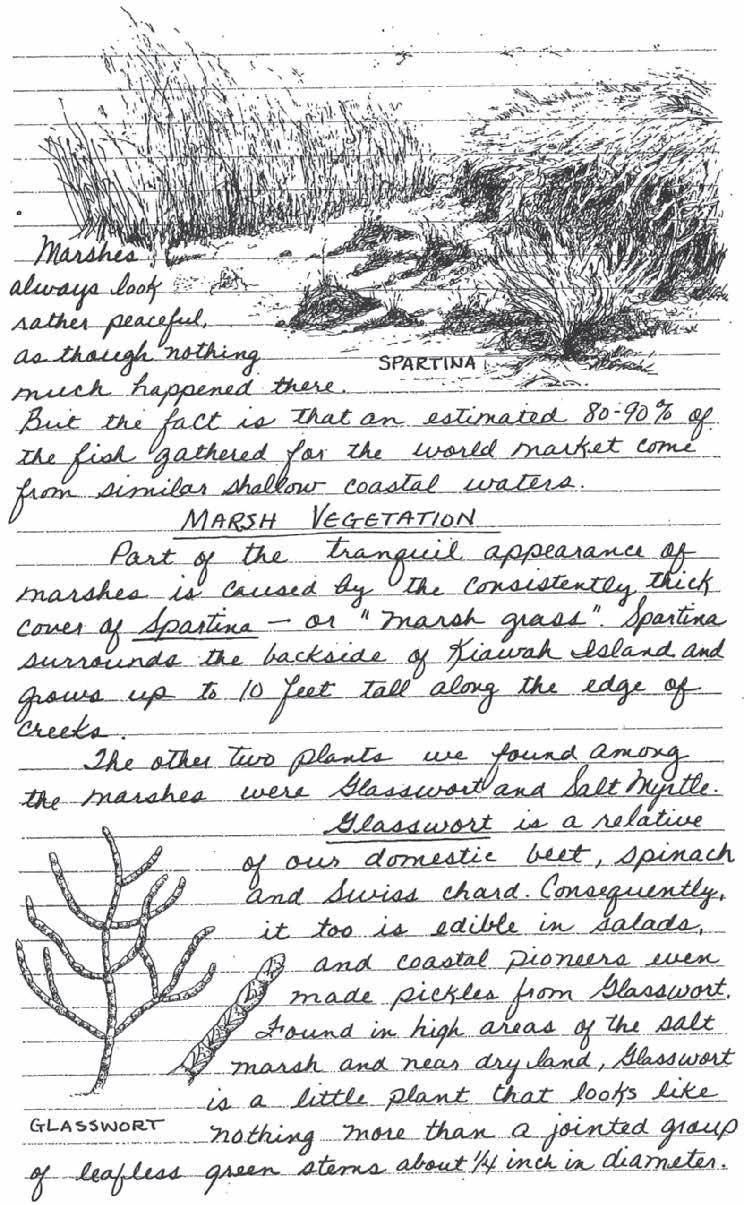 Marshes
always look
rather peaceful,
as though nothing
SPARTINA
much happened there.
But the fact is that an estimated 80-90% of
the fish gathered for the world market come
from similar shallow coastal waters.
MARSH VEGETATION
Part of the tranquil appearance of
marshes is caused by the consistently thick
cover of Spartina — or "marsh grass". Spartina
surrounds the backside of Kiawah Island and
grows up to 10 feet tall along the edge of
creeks.
The other two plants we found among
the marshes were Glasswort and Salt Myrtle.
Glasswort is a relative
of our domestic beet, spinach
and Swiss chard. Consequently,
it too is edible in salads,
and coastal pioneers even
made pickles from Glasswort.
Found in high areas of the salt
marsh and near dry land, Glasswort
is a little plant that looks like
GLASSWORT
nothing more than a jointed group
of leafless green stems about 1/4 inch in diameter.